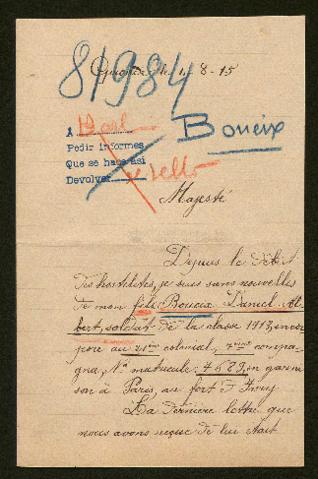 81984
le 4-8-15
Boueix
A Parl
Pedir informes
Que se hace asi
Devolver y sello
Majesté
Depuis le début
des hostilités, je suis sans nouvelles
de mon fils Boueix Daniel Al-
bert, soldat de la classe 1913, incor
poré au 21ème colonial, 7ème compa-
gna, No matricule: 4689, en garni
son à Paris, au fort d'Ivry
La dernière lettre que
nous avons reçue de lui était